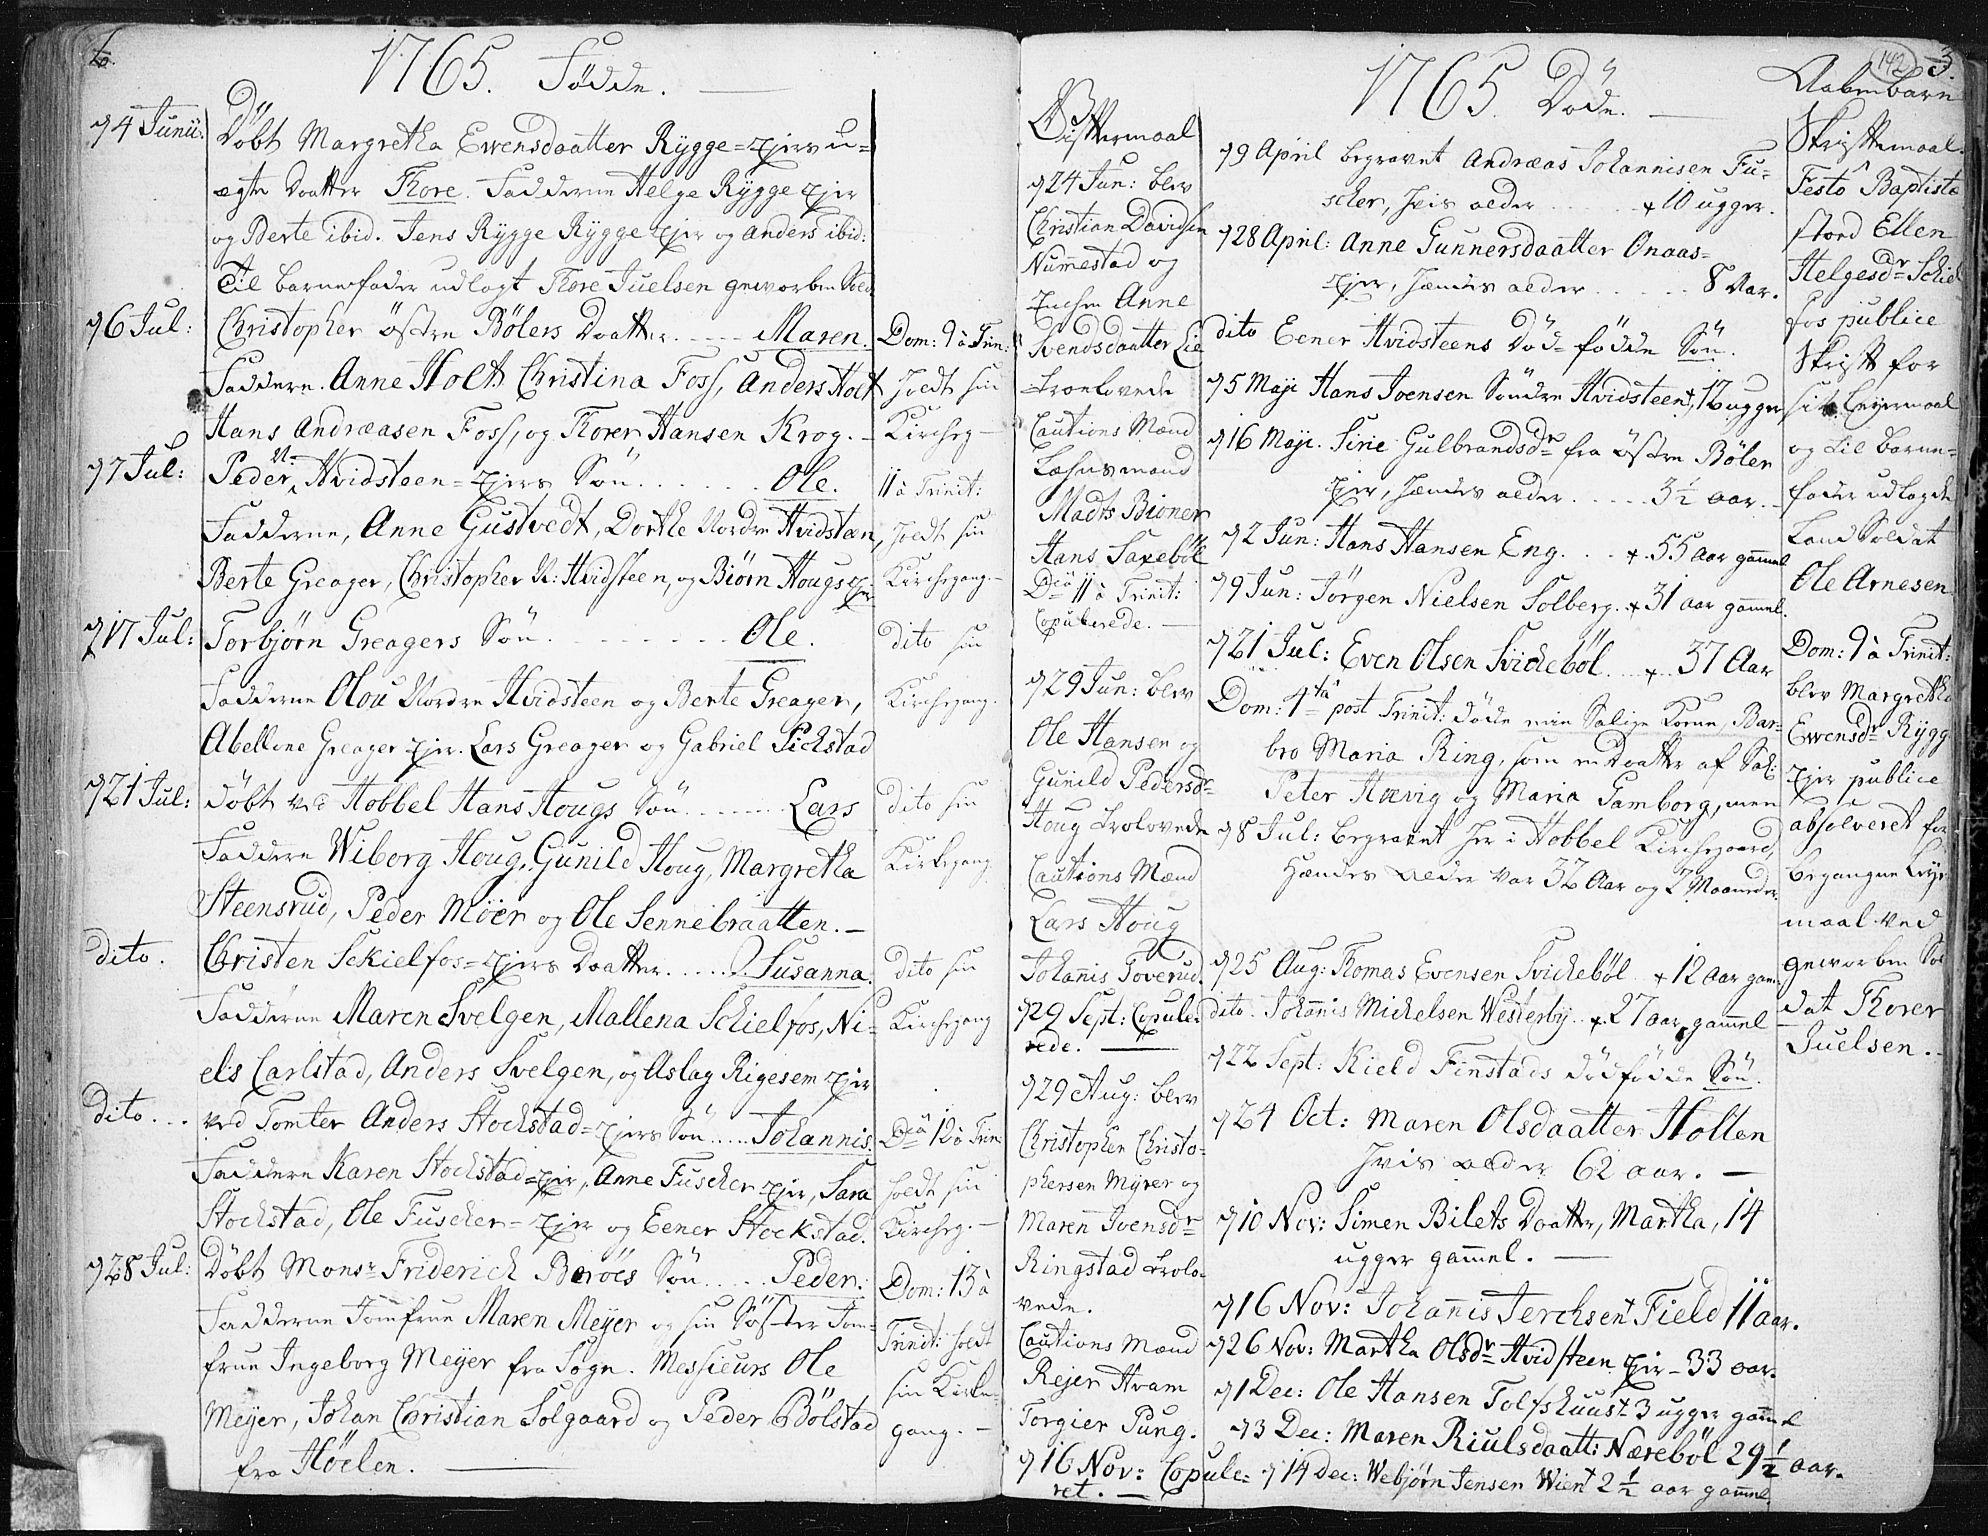 6.
1765. Fødde.
d 4 Junii.
Døbt Margretha Ewensdaatter Rygge=ejers u=
ægte Daatter Thore. Fadderne Helge Rygge ejer
og Berte ibid. Jens Rygge Rygge ejer og Anders ibid:
Til barnefader udlagt Thore Juelsen geworben Sold.
d 6 Jul:
Christopher østre Bølers Daatter ..... Maren.
Faddere. Anne Holt Christina Foss, Anders Holt
Hans Andræasen Foss, og Thorer Hansen Krog. —
Dom: 9 à Trin:
holdt sin
Kircheg —
d 7 Jul:
Peder N: Hvidsteen=ejers Søn ....... Ole.
Fadderne, Anne Gustvedt, Dorthe Nordre Hvidsteen,
Berte Greager, Christopher N: Hvidsteen, og Biørn Hougs ejer
11 à Trinit:
holdt sin
Kirchegang. —
d 17 Jul:
Torbjørn Greagers Søn. ....... Ole.
Fadderne Olou Nordre Hvidsteen og Berte Greager,
Abellone Greager ejer. Lars Greager og Gabriel Sichstad
dito sin
Kirchegang.
d 21 Jul:
døbt ved Hobbel Hans Hougs Søn ...... Lars
Faddere Wiborg Houg, Gunild Houg, Margretha
Steensrud, Peder Möer og Ole Sennebraatten. —
dito sin
Kirkegang
dito.
Christen Sckielfos=ejers Daatter ...... Susanna.
Fadderne Maren Svelgen, Mallena Schielfos, Ni=
els Carlstad, Anders Svelgen, og Aslag Rigesem ejer
dito sin
Kirchegang
dito...
ved Tomter Anders Stochstad=ejers Søn ..... Johannis.
Faddere Karen Stochstad=ejer, Anne Fuscher ejer, Sara
Stochstad, Ole Fuscher=ejer og Eener Stockstad.
Dca 12 à Trin
holdt sin
Kircheg. —
d 28 Jul:
Døbt Monsr Friderich Boröes Søn ..... Peder.
Fadderne Jomfrue Maren Meyer og sin Søster Jom=
frue Ingeborg Meyer fra Sogn. Messieurs Ole
Meyer, Johan Christian Solgaard og Peder Bölstad
fra Höelen. —
Dom: 13 à
Trinit: holdt
sin Kirke=
gang. —
1765 Døde.
142 3.
Bistermaal
d 24 Jun: blev
Christian Davidsen
Nummestad og
Anne
Svendsdaatter Lie
trolovede
Cautions Mænd
Lehnsmand
Madts Biöner
Hans Saxebøl
Dca 11 à Trinit:
Copulerede. —
d 29 Jun: blev
Ole Hansen og
Gunild Pedersdr
Houg trolovede
Cautions Mænd
Lars Houg
Johannis Toverud.
d 29 Sept: Copule=
rede. —
d 29 Aug: blev
Christopher Christo=
phersen Myrer og
Maren Ivensdr
Ringstad trolo=
vede.
Cautions Mænd
Rejer Hvam
Torgier Pung.
d 16 Nov: Copule=
ret. —
d 9 April begravet Andræas Johannisen Fu=
scher, hvis alder ..... + 10 ugger.
d 28 April: Anne Gunnersdaatter Onaas=
ejer, hændes alder ..... 8 Aar.
dito Eener Hvidsteens Død=fødde Søn.
d 5 Maji Hans Joensen Søndre Hvidsteen +, 12 ugger
d 16 Maji. Sirie Gulbrandsdr fra østre Bøler
ejer, hændes alder ..... 3½ aar.
d 2 Jun: Hans Hansen Eng. ... + 55 aar gammel
d 9 Jun: Jörgen Nielsen Solberg. + 31 aar gammel.
d 21 Jul: Even Olsen Svichebøl ... + 37 Aar
Dom: 4ta post Trinit: døde min Salige Kone, Bar=
bro Maria Ring, som en Daatter af Sal:
Peter Hævig og Maria Tamborg, men
d 8 Jul: begravet her i Hobbel Kirchegaard,
Hændes alder var 32 Aar og 2 Maaneder.
d 25 Aug: Thomas Evensen Svichebøl + 12 aar gam
dito. Johannis Michelsen Westerby + 27 aar gammel
d 22 Sept: Kield Finstads dödfødde Søn.
d 24 Oct: Maren Olsdaatter Holten
hvis alder 62 aar. —
d 10 Nov: Simen Bilets Daatter, Martha, 14
ugger gammel. —
d 16 Nov: Johannis Jerchsen + Field 11 aar.
d 26 Nov: Martha Olsdr Hvidsteen ejer – 33 aar.
d 1 Dec: Ole Hansen Tolfshuus + 3 ugger gammel
d 3 Dec: Maren Riulsdaatt: Nærebøl 29½ aar.
d 14 Dec: Webjørn Jensen Wien + 2½ aar gammel.
Aabenbare
Skriftemaal.
Festo Baptistæ
stoed Ellen
Helgesdr Schiel
fos publice
Skrift for
sit Leyermaal
og til barne=
fader udlagde
Land Soldat
Ole Arnesen
Dom: 9 à Trinit:
blev Margretha
Ewensdr Rygg
ejer publice
absolveret for
begangne Leyer
maal ved
geworben Sol
dat Thorer
Juelsen. —